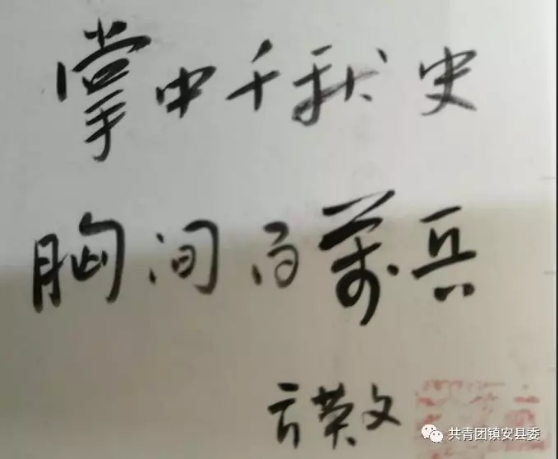 掌中千秋史
胸间百万兵
方英文
共青团镇安县委